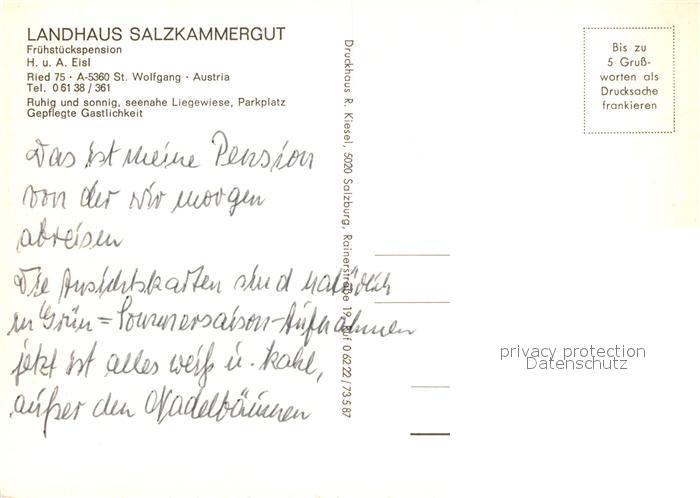 LANDHAUS SALZKAMMERGUT
Frühstückspension
H. u. A. Eisl
Ried 75 · A-5360 St. Wolfgang · Austria
Tel. 0 61 38 / 361
Ruhig und sonnig, seenahe Liegewiese, Parkplatz
Gepflegte Gastlichkeit
Das ist meine Pension
von der wir morgen
abreisen
Die Ansichtskarten sind natürlich
in Grün = Sommersaison-Aufnahmen
jetzt ist alles weiß u. kahl,
außer den Nadelbäumen
Druckhaus R. Kiesel, 5020 Salzburg, Rainerstraße 19, Ruf 0 62 22 / 73 5 87
Bis zu
5 Gruß-
worten als
Drucksache
frankieren
privacy protection
Datenschutz